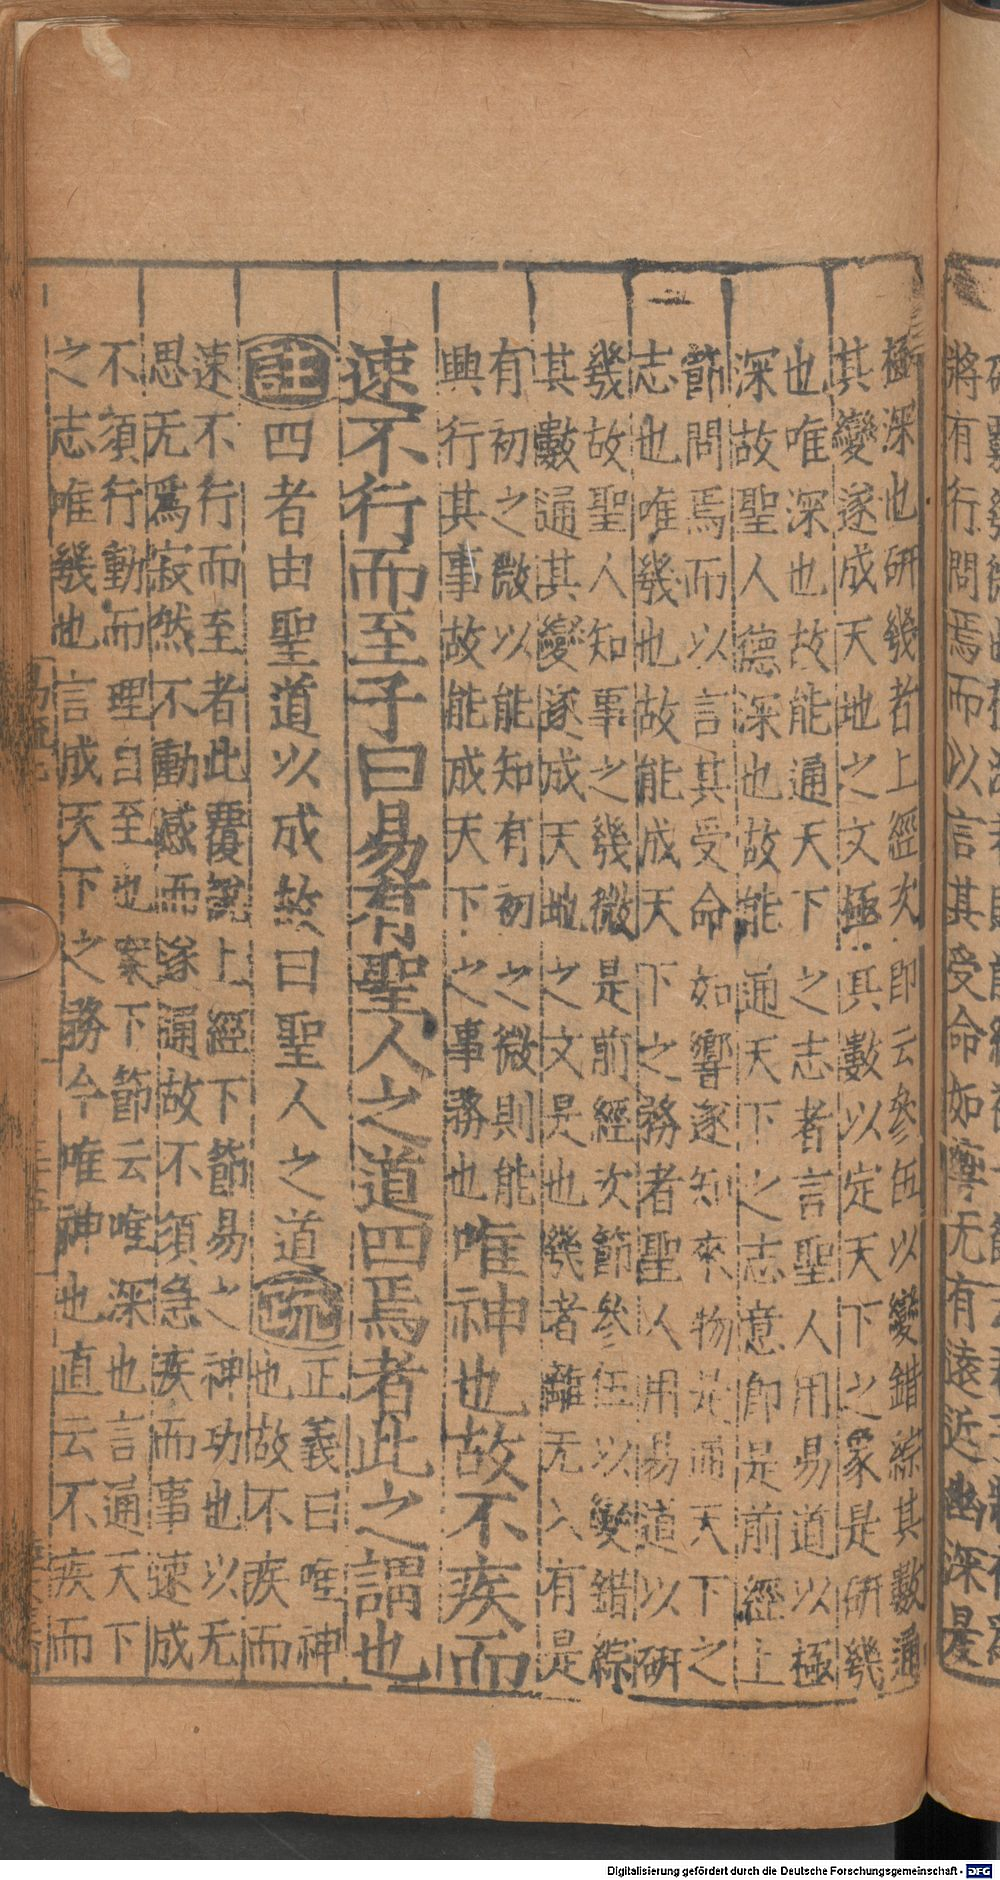 將有行問焉而以言其受命如嚮无有遠近幽深是
極深也研幾者上經次即云參伍以變錯綜其數通
其變遂成天地之文極其數以定天下之象是研幾
也唯深也故能通天下之志者言聖人用易道以極
深故聖人德深也故能通天下之志意即是前經上
節問焉而以言其受命如響遂知來物是通天下之
志也唯幾也故能成天下之務者聖人用易道以研
幾故聖人知事之幾微是前經次節參伍以變錯綜
其數通其變遂成天地之文是也幾者離无入有是
有初之微以能知有初之微則能
興行其事故能成天下之事務也
唯神也故不疾而
速不行而至子曰易有聖人之道四焉者此之謂也
註四者由聖道以成故曰聖人之道疏
正義曰唯神
也故不疾而
速不行而至者此覆說上經下節易之神功也以无
思无爲寂然不動感而遂通故不須急疾而事速成
不須行動而理自至也案下節云唯深也言通天下
之志唯幾也言成天下之務今唯神也直云不疾而
Digitalisierung gefördert durch die Deutsche Forschungsgemeinschaft - DFG